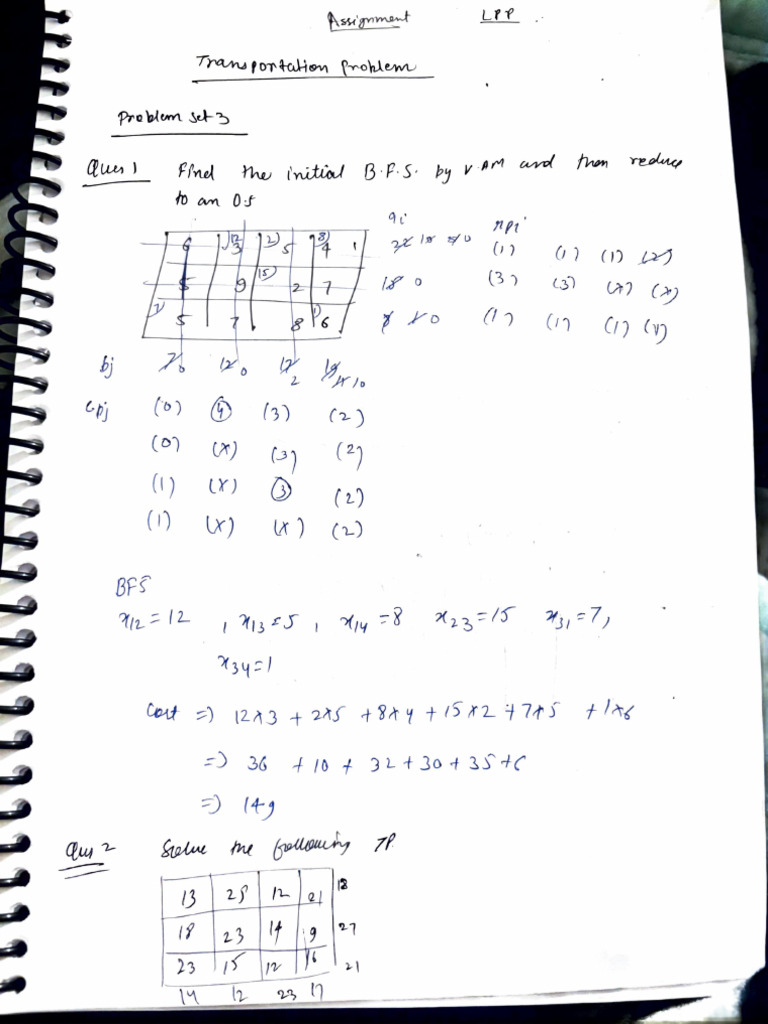 Assignment LPP.
Transportation Problem
Problem Set 3
Ques 1 Find the initial B.F.S. by VAM and then reduce
to an O.S
ai rpi
6 (12) 3 (2) 5 (8) 4 22 10 8 0 (1) (1) (1) (2)
5 9 (15) 2 7 15 0 (3) (3) (x) (x)
(7) 5 7 8 (1) 6 8 1 0 (1) (1) (1) (1)
bj 7 0 12 0 17 2 10
cpj (0) (4) (3) (2)
(0) (x) (3) (2)
(1) (x) (3) (2)
(1) (x) (x) (2)
BFS
x12 = 12 , x13 = 5 , x14 = 8 x23 = 15 x31 = 7,
x34 = 1
Cost => 12x3 + 2x5 + 8x4 + 15x2 + 7x5 + 1x6
=> 36 + 10 + 32 + 30 + 35 + 6
=> 149
Ques 2 Solve the following TP.
13 25 12 21 18
18 23 14 9 27
23 15 12 16 21
14 12 23 17